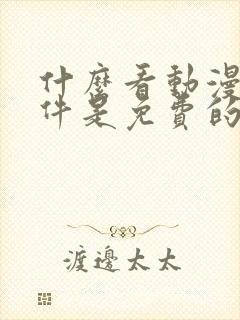 什麼看動漫
件是免費的
渡邊太太